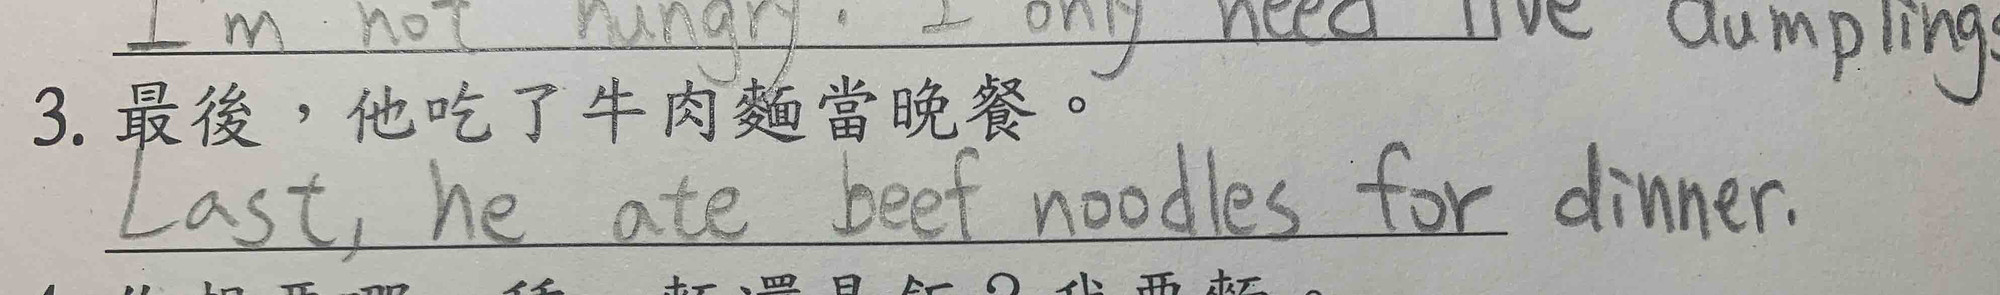 I'm not hungry. I only need five dumplings
3. 最後，他吃了牛肉麵當晚餐。
Last, he ate beef noodles for dinner.